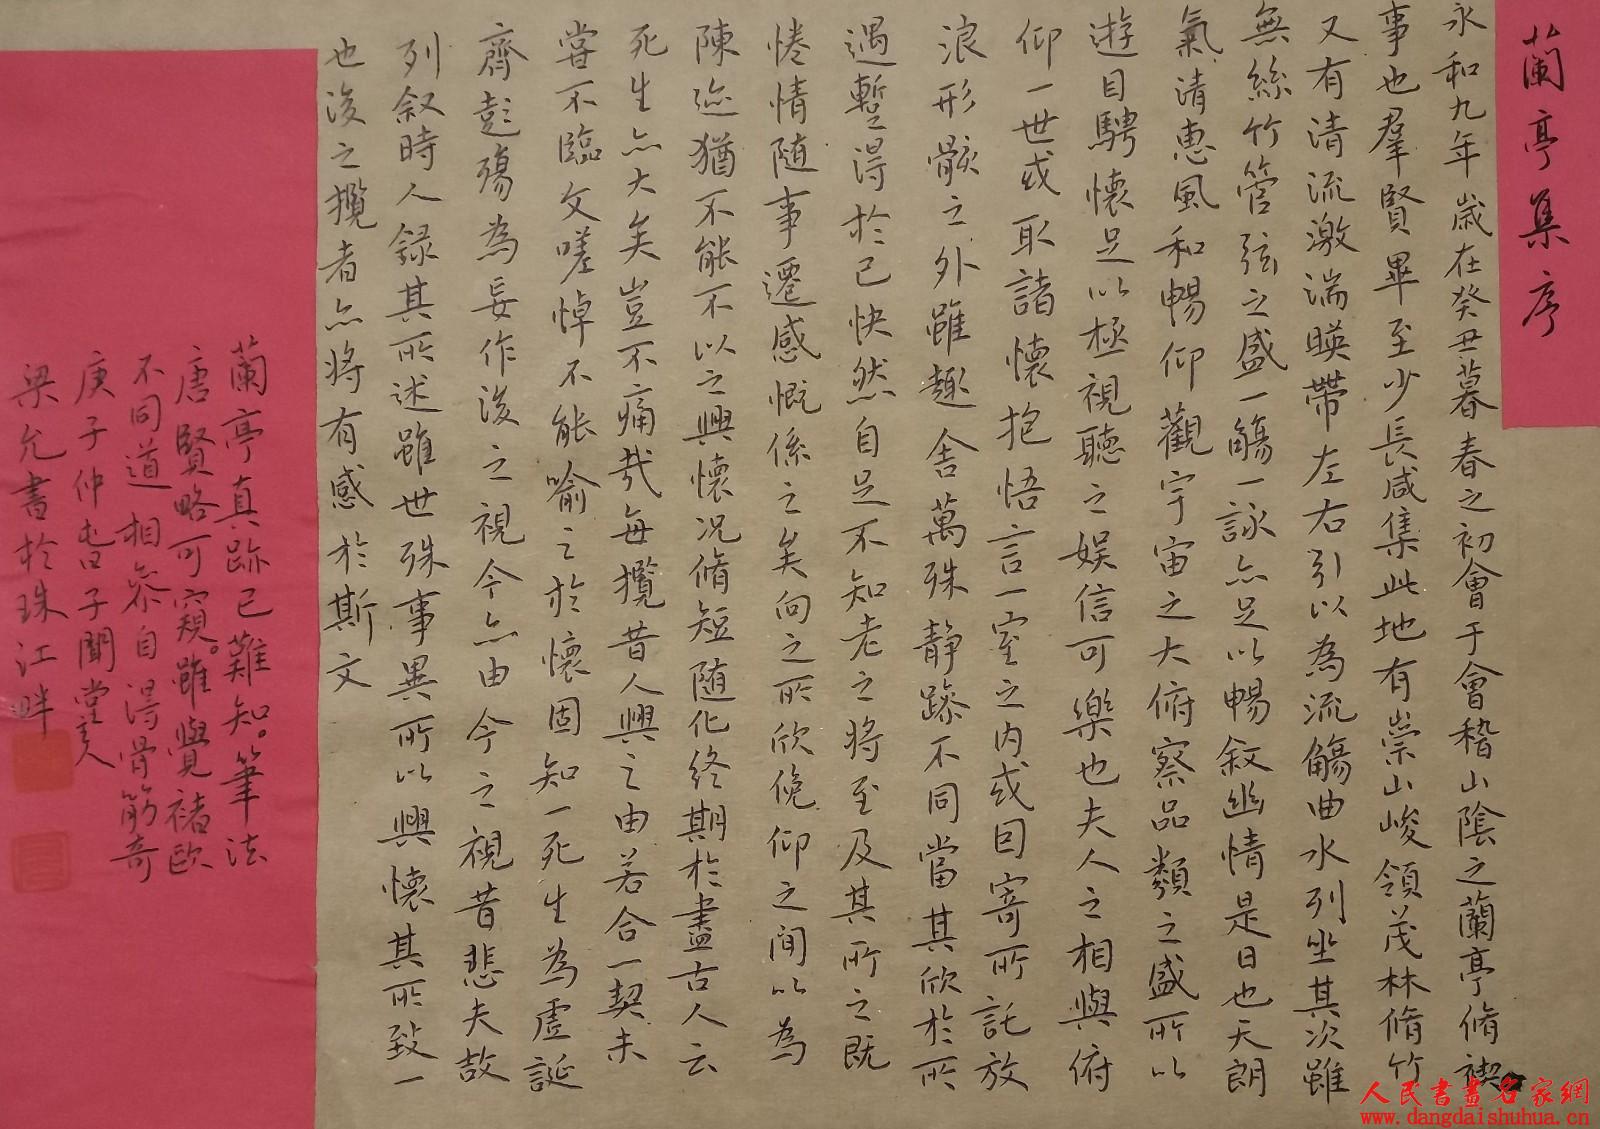 蘭亭集序
永和九年歲在癸丑暮春之初會于會稽山陰之蘭亭脩禊
事也羣賢畢至少長咸集此地有崇山峻領茂林脩竹
又有清流激湍暎帶左右引以為流觴曲水列坐其次雖
無絲竹管弦之盛一觴一詠亦足以暢叙幽情是日也天朗
氣清惠風和暢仰觀宇宙之大俯察品類之盛所以
遊目騁懷足以極視聽之娱信可樂也夫人之相與俯
仰一世或取諸懷抱悟言一室之内或因寄所託放
浪形骸之外雖趣舍萬殊静躁不同當其欣於所
遇暫得於己快然自足不知老之將至及其所之既
惓情随事遷感慨係之矣向之所欣俛仰之間以為
陳迹猶不能不以之興懷况脩短随化終期於盡古人云
死生亦大矣豈不痛哉每攬昔人興之由若合一契未
嘗不臨文嗟悼不能喻之於懷固知一死生為虚誕
齊彭殤為妄作後之視今亦由今之視昔悲夫故
列叙時人録其所述雖世殊事異所以興懷其所致一
也後之攬者亦將有感於斯文
蘭亭真跡已難知。筆法
唐賢略可窺。雖覺褚歐
不同道相参自得骨筋奇
庚子仲春子聞堂主人
梁允書於珠江畔
人民書畫名家網
www.dangdaishuhua.cn